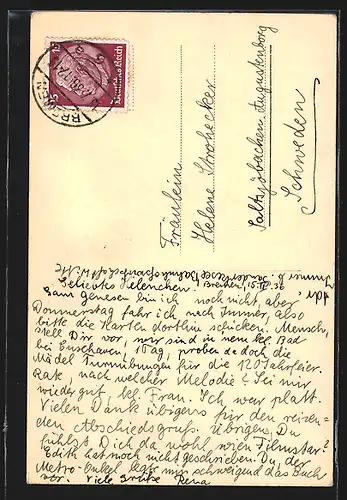 Deutsches Reich
BREMEN
Fräulein
Helene Strohecker
Saltsjöbaden Augustenborg
Schweden
Geliebtes Helenchen! Bremen, 15. 36
Ganz genesen bin ich noch nicht, aber
Donnerstag fahr ich nach Immer, also
bitte die Karten dorthin schicken. Mensch,
stell Dir vor, wir sind in nem kl. Bad
bei 10 Tag, proben da doch die
Mädel Turnübungen für die 120 Jahrfeier.
Rate, nach welcher Melodie? Sei mir
wieder gut, bel. Frau. Ich war platt.
Vielen Dank übrigens für den reizen-
den Abschiedsgruß. Übrigens, Du
fühlst Dich da wohl wien Filmstar?
Edith hat noch nicht geschrieben. Du, der
Metro-Enkel legte mir schweigend das Buch
vor. Viele Grüße Rena